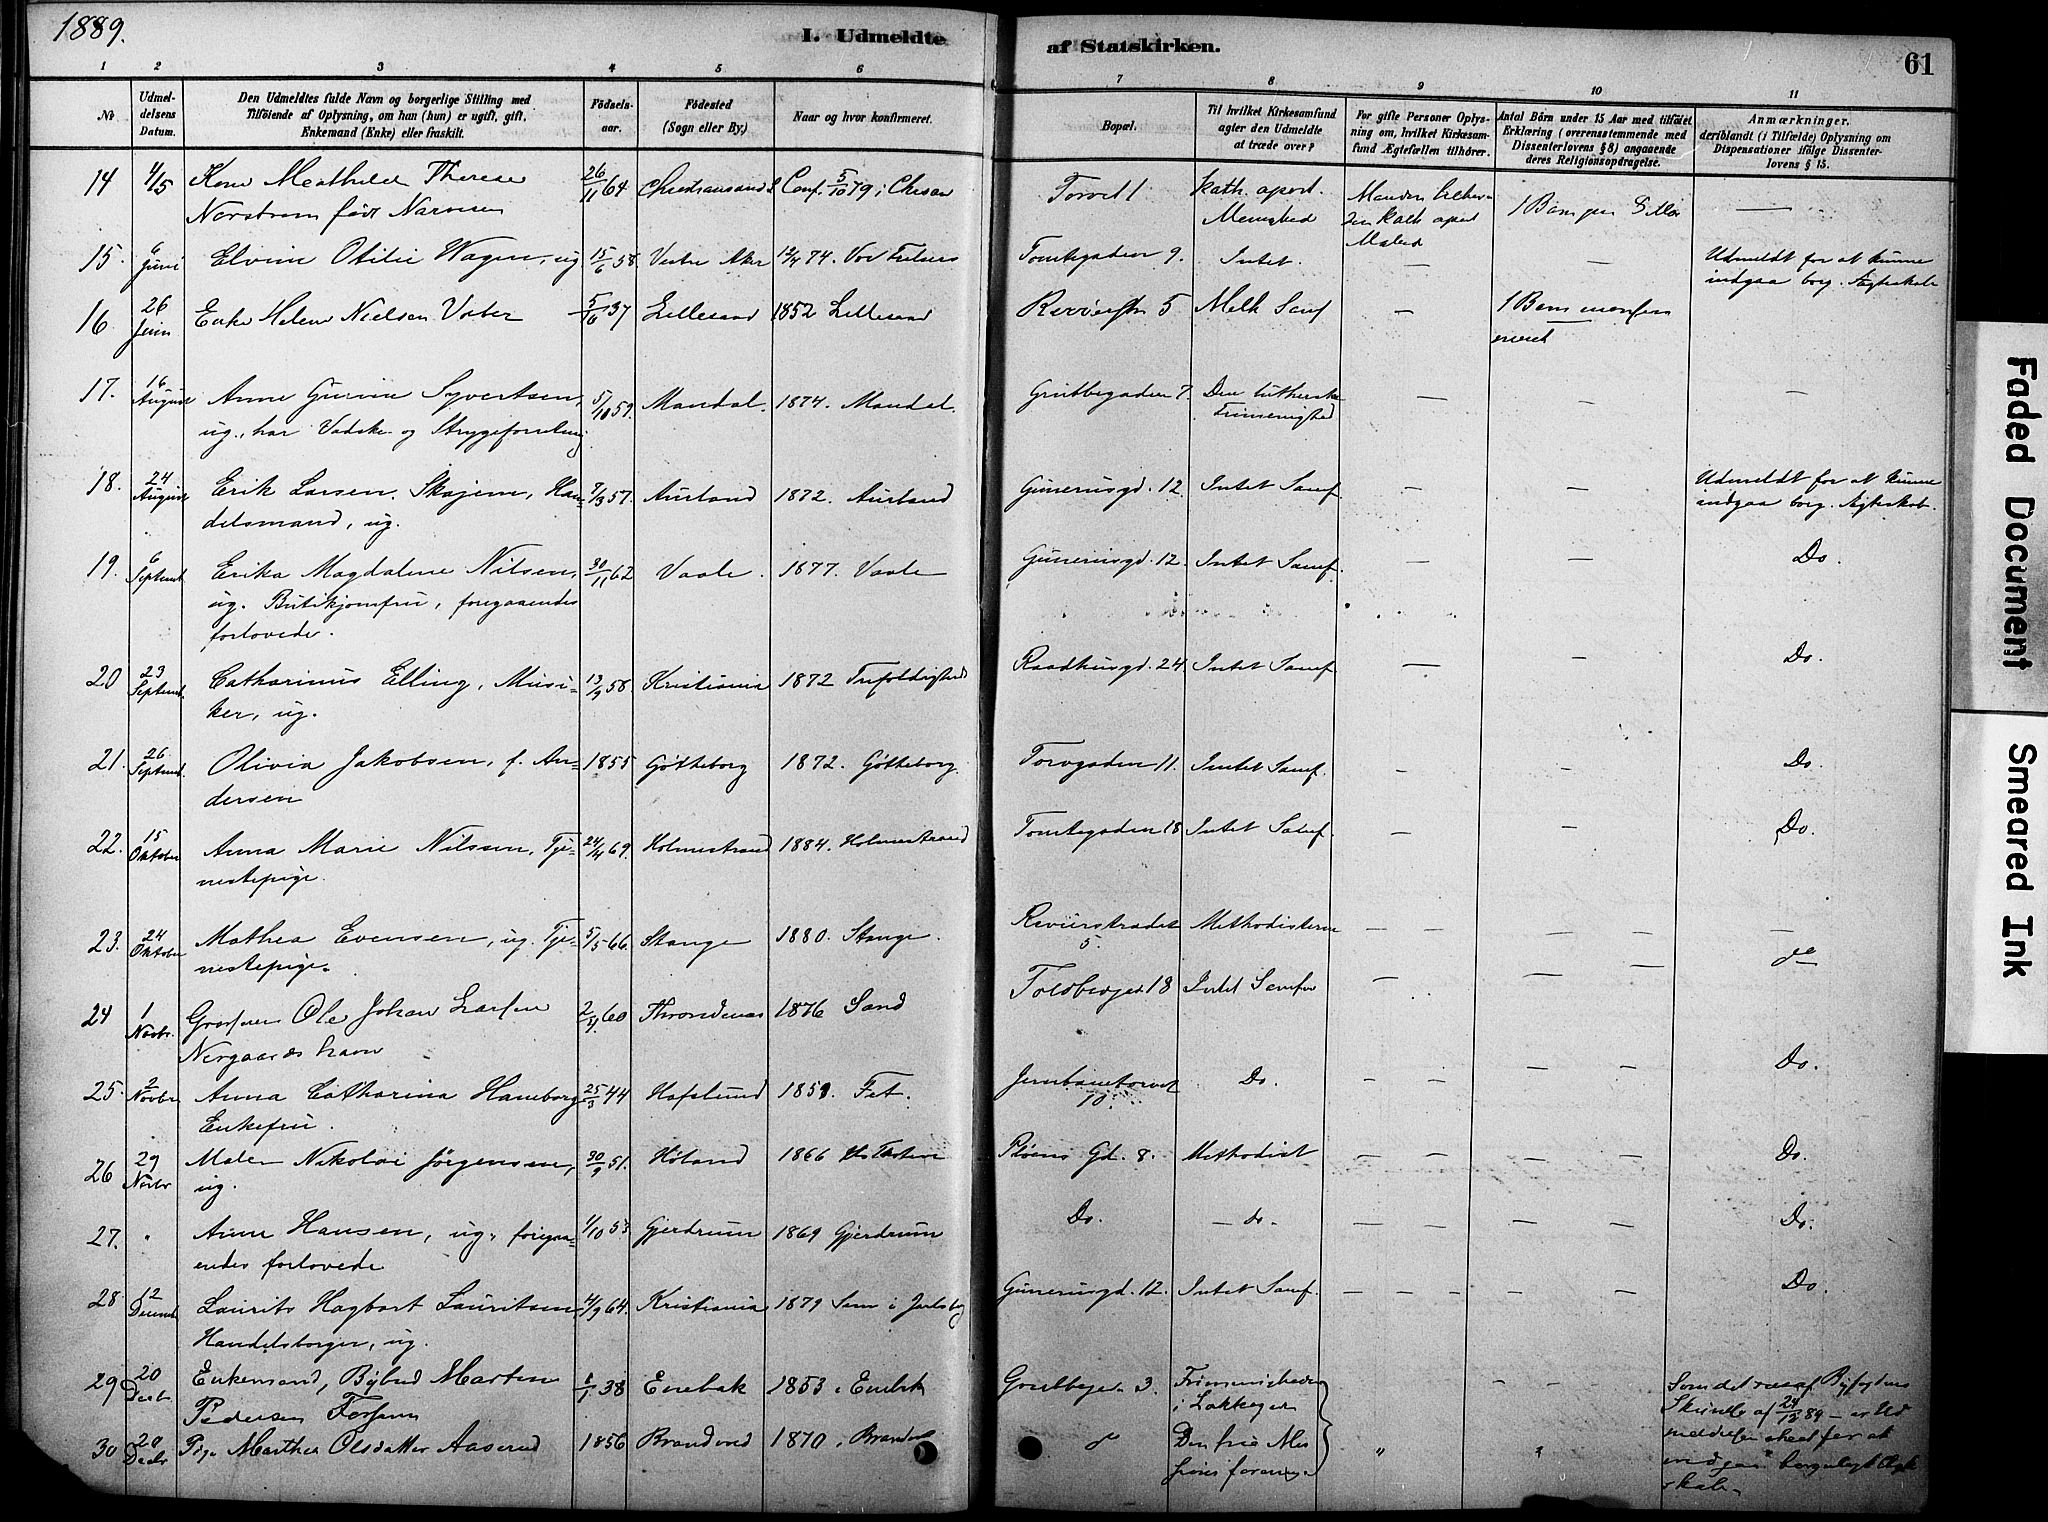 1889.
I. Udmeldte af Statskirken.
61
1 2 3 4 5 6 7 8 9 10 11
Nr.
Udmeldelsens Datum.
Den Udmeldtes fulde Navn og borgerlige Stilling med
Tilføiende af Oplysning, om han (hun) er ugift, gift,
Enkemand (Enke) eller fraskilt.
Fødselsaar.
Fødested
(Sogn eller By.)
Naar og hvor konfirmeret.
Bopæl.
Til hvilket Kirkesamfund
agter den Udmeldte
at træde over?
For gifte Personer Oplys-
ning om, hvilket Kirkesam-
fund Ægtefællen tilhører.
Antal Børn under 15 Aar med tilføiet
Erklæring (overensstemmende med
Dissenterlovens § 8) angaaende
deres Religionsopdragelse.
Anmærkninger,
deriblandt (i Tilfælde) Oplysning om
Dispensationer ifølge Dissenter-
lovens § 15.
14 4/15 Kone Mathilde Therese 26/11 64 Christiansand Conf. 5/10 79 i Torvet 1 kath. apost. Manden
Norstrøm født Narvesen Menighed kath apost 1 Barn
15. 6 Juni Elvine Otilie Wagen, ug 15/6 58. Vestre Aker 12/4 74. Vor Frelsers Tomtegaden 9. Intet. — — Udmeldt for at kunne
indgaa borg. Ægteskab
16. 26 Juni Enke Helene Nielsen 5/10 37 Lillesand 1852 Lillesand 5 Meth Samf — 1 Barn
17. 16 August Anne Gurine Syvertsen, 5/10 59. Mandal. 1874. Mandal. Grubbegaden 7. Den lutherske — — —
ug., har Vadske- og Strygeforretning Frimenighed
18. 24 August Erik Larsen Skajem, Han- 7/3 57. Aurland 1872. Aurland Gunerusgd. 12. Intet Samf. — — Udmeldt for at kunne
delsmand, ug. indgaa borg. Ægteskab.
19. 6 Septemb. Erika Magdalene Nilsen, 30/11 62 Vaale. 1877. Vaale Gunerusgd. 12. Intet Samf. — — Do.
ug. Butikjomfru, foregaaendes
forlovede.
20 23 Septemb. Catharinus Elling, Musi- 13/9 58 Kristiania 1872 Trefoldigheds Raadhusgd. 24. Intet Samf. — — Do.
ker, ug.
21. 26 Septemb. Olivia Jakobsen, f. An- 1855 Gøtteborg 1872. Gøtteborg. Torvgaden 11. Intet Samf. — — Do.
dersen
22. 15 Oktober Anna Marie Nilssen, Tje- 24/4 69. Holmestrand 1884. Holmestrand Tomtegaden 18 Intet Samf. — — Do.
nestepige.
23. 24 Oktober Mathea Evensen, ug. Tje- 5/5 66. Stange 1880. Stange. Revierstrædet Methodisterne — — — — —
nestepige. 5.
24 1 Novbr. Ole Johan Larsen 2/4. 60 Throndenæs 1876 Sand 18 Intet Samfun — — — do
Nergaardshavn
25. 2 Novbr. Anna Catharina Haneborg 25/3 44 Hafslund 1859. Fet. Jernbanetorvet Do. — — — — Do.
Enkefru. 10.
26 29 Novbr. Maler Nikolai Jørgensen, 30/9 51. Høland 1866 Pløens Gd. 8. Methodist — — — — Do.
ug.
27. " Anne Hansen, ug., foregaa- 1/10 53 Gjerdrum 1869 Gjerdrum Do. — do — — — — Do.
endes forlovede
28 12 Decemb. Laurits Hagbart Lauritsen, 4/9 64. Kristiania 1879 Sem i Jarlsberg Gunerusgd. 12. Intet Samf. — — — — Do.
Handelsborger, ug.
29 20 Decb. Enkemand, Bybud Martin 38 Enebak 1853 i Enebak 3. Frimenigheden
Pedersen i Lakkegd.
30 20 Decbr. Pige Marthea Olsdatter Aaserud 1856 Brandvold 1870 i do Den frie Mis-
sions forening " "
Som det sees af Byfogdens
Skrivelse af 24/12 89 — er Ud-
meldelsen skeet for at
indgaa borgerligt Ægte-
skab.
Faded Document
Smeared Ink